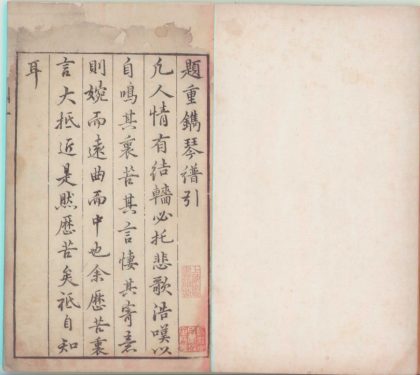 題重鐫琴譜引
凡人情有結轖必托悲歌浩嘆以
自鳴其裏苦其言悽其寄意
則婉而遠曲而中也余歷苦裏
言大抵近是然歷苦矣祇自知
耳